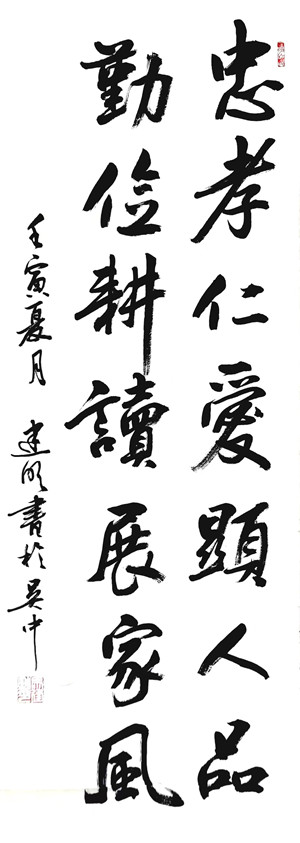 忠孝仁愛顯人品
勤俭耕讀展家風
壬寅夏月 建明書於吳中